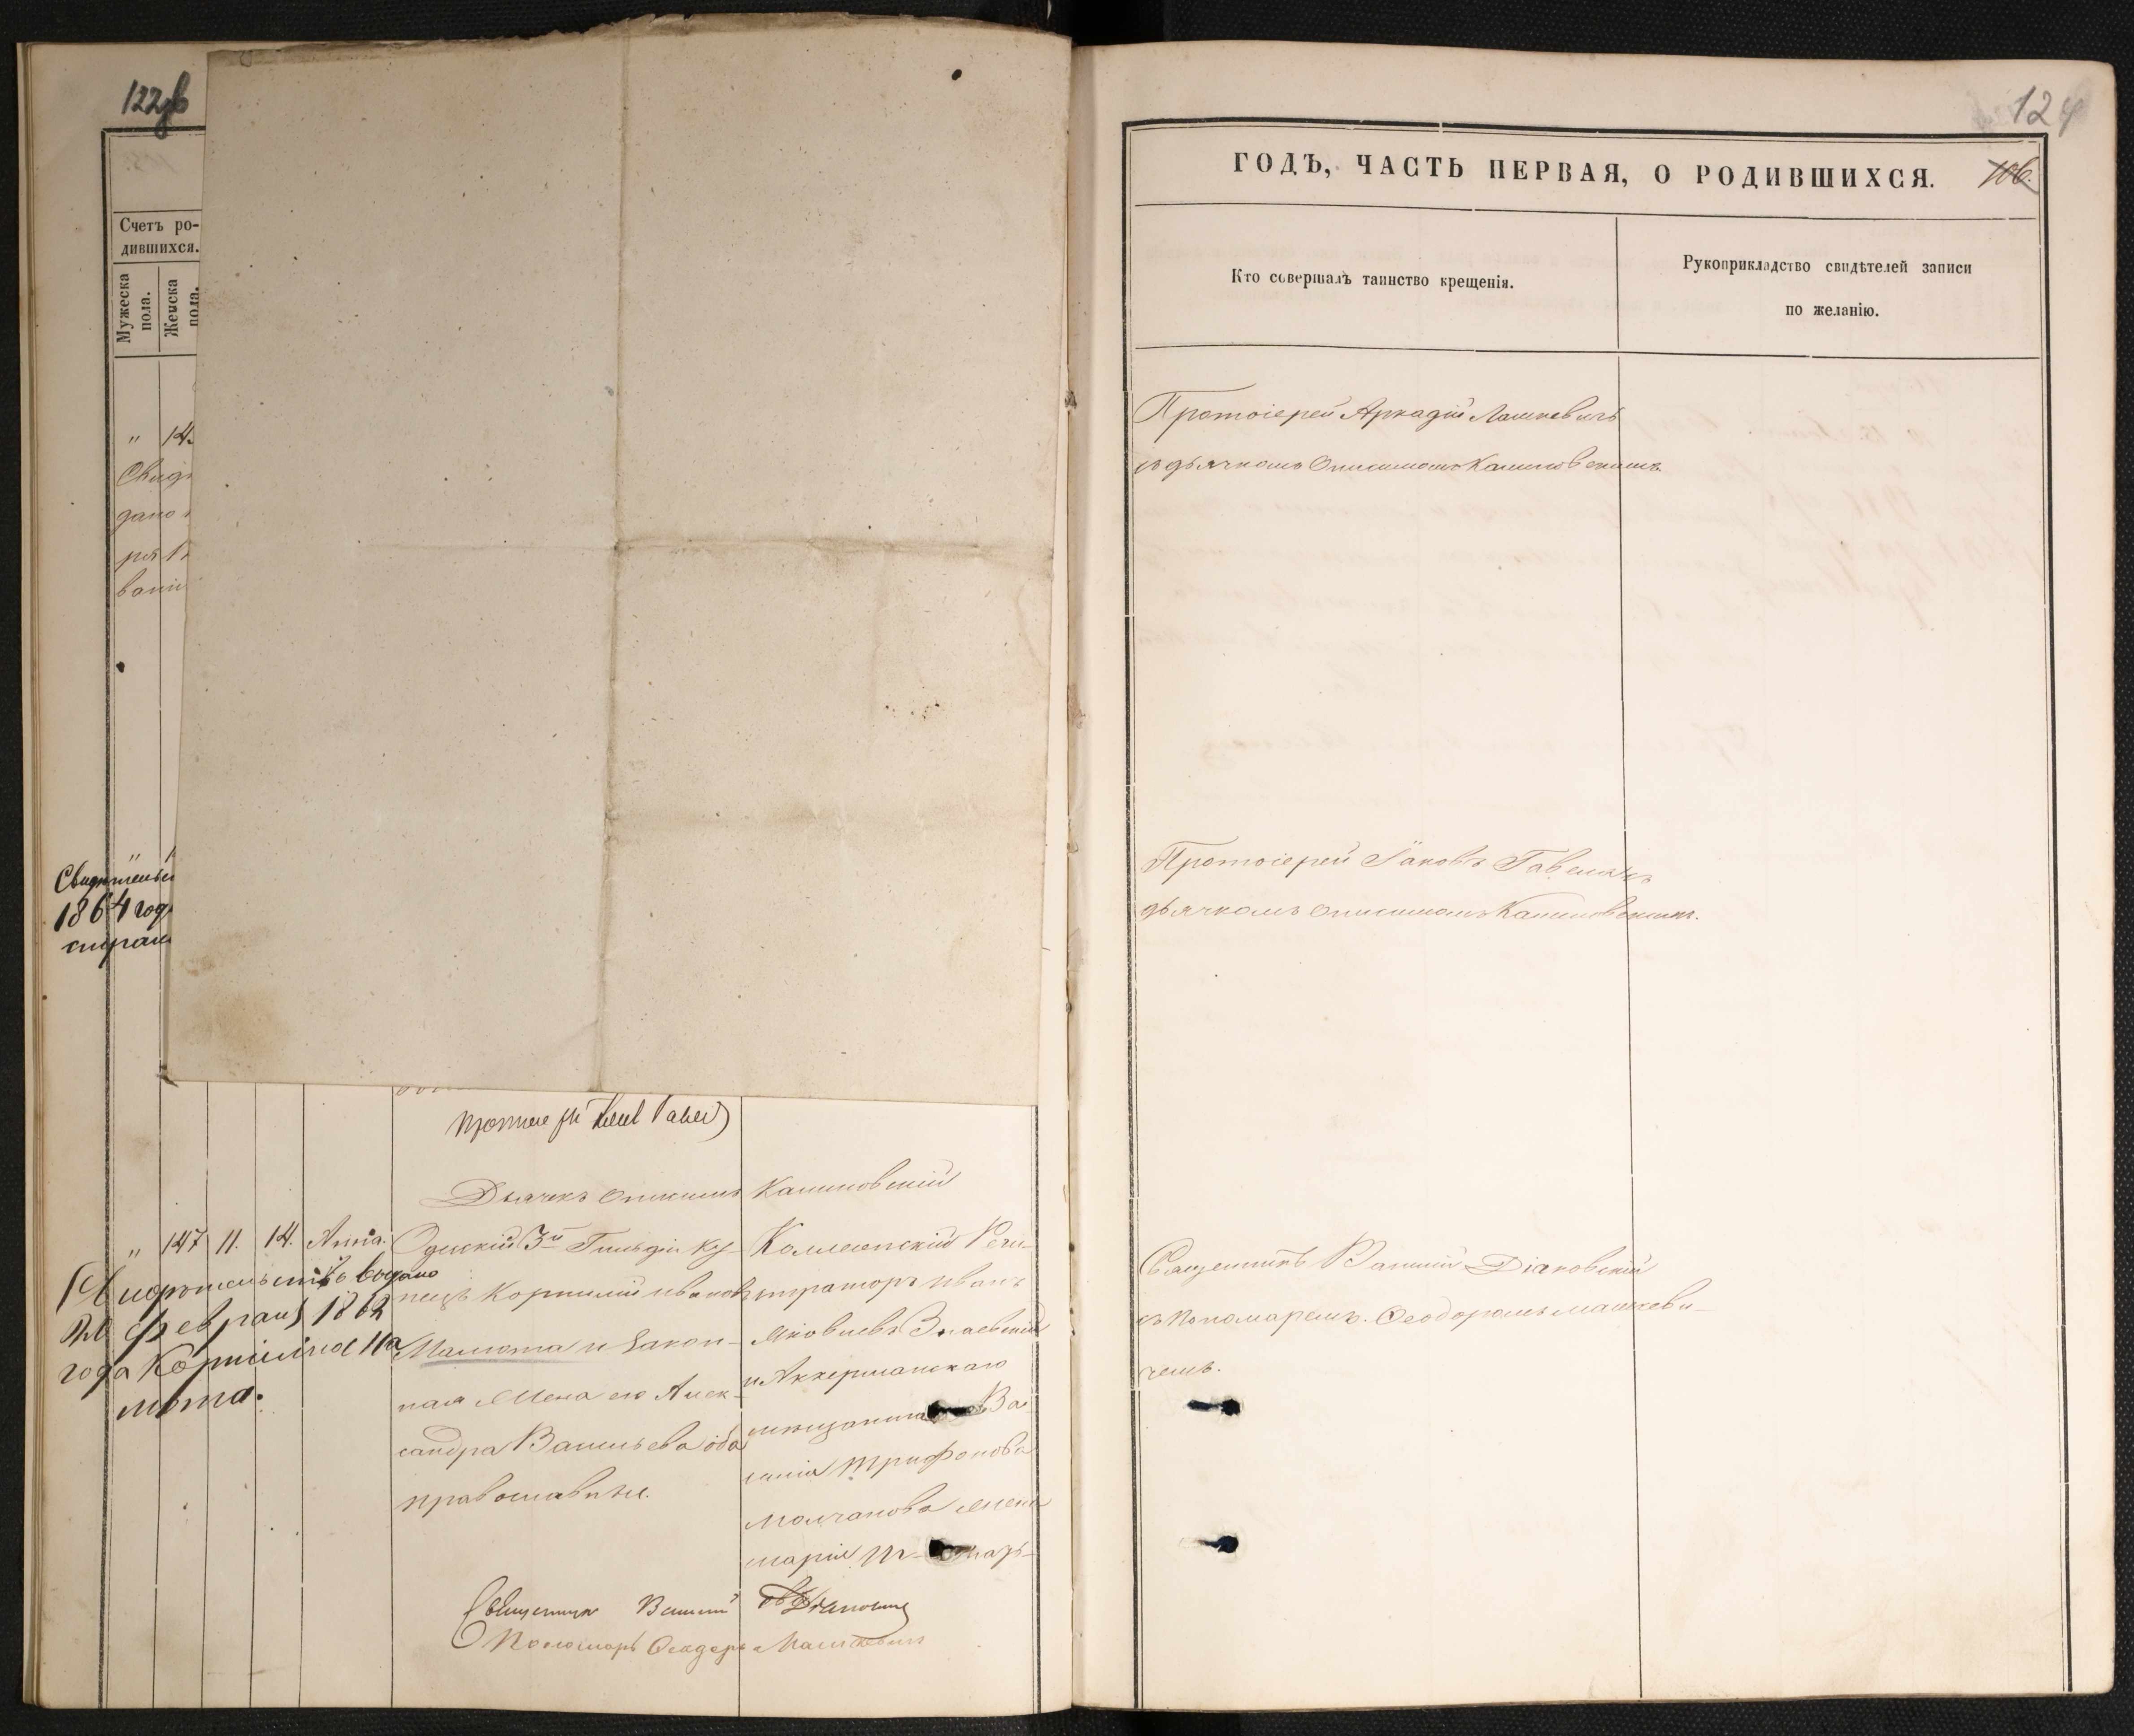 122об
Счетъ ро-
дившихся.
Мужеска
пола.
Женска
пола.
"
Свид
дано
ря
вані
"
Свидѣтельс
1864 год
Дьячекъ Онисимъ Калиновскій
" 147 11. 14. Анна.
Свидѣтельство выдано
Февраля 1862
года Корнилію Ма
люта.
Одескій 3й Гильдіи Ку-
пецъ Корнилій Ивановъ
Малюта и закон-
ная жена его Алек-
сандра Васильева оба
православные.
Коллежскій Реги-
страторъ Иванъ
Яковлевъ Знаевскій
и Аккерманскаго
мѣщанина Ва-
силія Трифонова
Молчанова жена
Марія
Священникъ Василій Діаковскій
Пономарь Ѳеодоръ Машкевичъ
124
ГОДЪ, ЧАСТЬ ПЕРВАЯ, О РОДИВШИХСЯ. 106.
Кто совершалъ таинство крещенія.
Рукоприкладство свидѣтелей записи
по желанію.
Протоіерей Аркадій Лашкевичъ
съ дьячкомъ Онисимомъ Калиновскимъ
Протоіерей Іаковъ Гавель съ
дьячкомъ Онисимомъ Калиновскимъ.
Священникъ Василій Діаковскій
съ Пономаремъ. Ѳеодоромъ Машкеви-
чемъ.